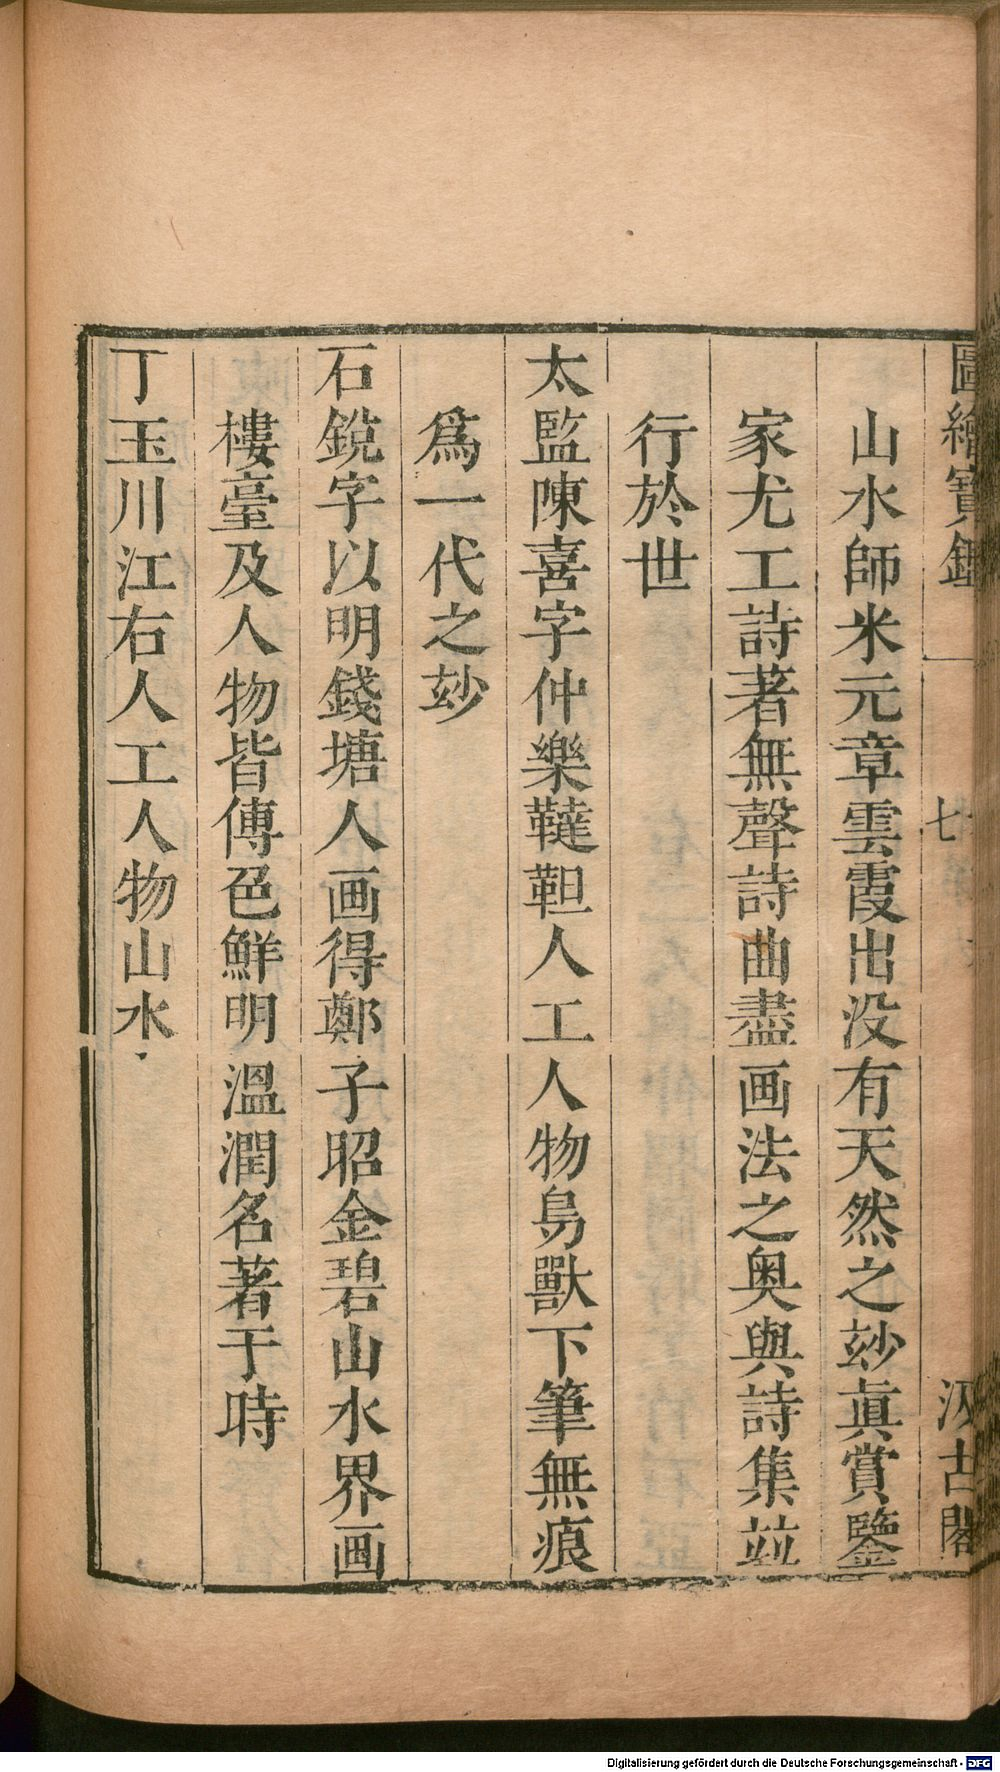 圖繪寶鑑
七
汲古閣
山水師米元章雲霞出没有天然之玅眞賞鑒
家尤工詩著無聲詩曲盡画法之奥與詩集竝
行於世
太監陳喜字仲樂韃靼人工人物鳥獸下筆無痕
爲一代之玅
石銳字以明錢塘人画得鄭子昭金碧山水界画
樓臺及人物皆傅色鮮明溫潤名著于時
丁玉川江右人工人物山水
Digitalisierung gefördert durch die Deutsche Forschungsgemeinschaft - DFG